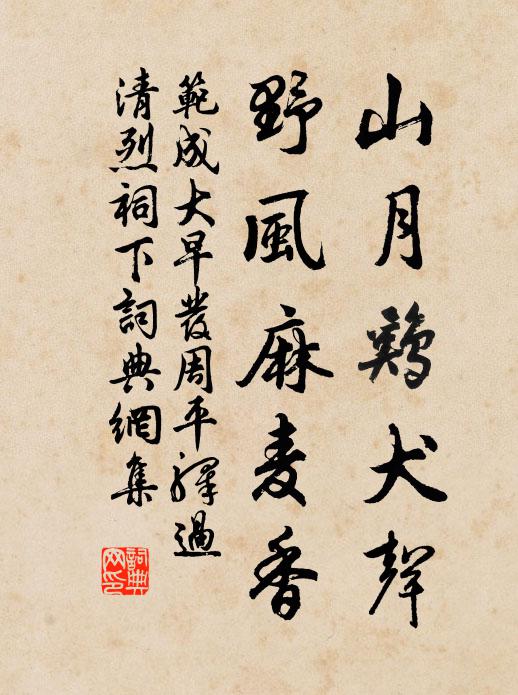 山月鷄犬聲
野風麻麦香
範成大早發周平驛過
清烈祠下詞典網集
詞典网印